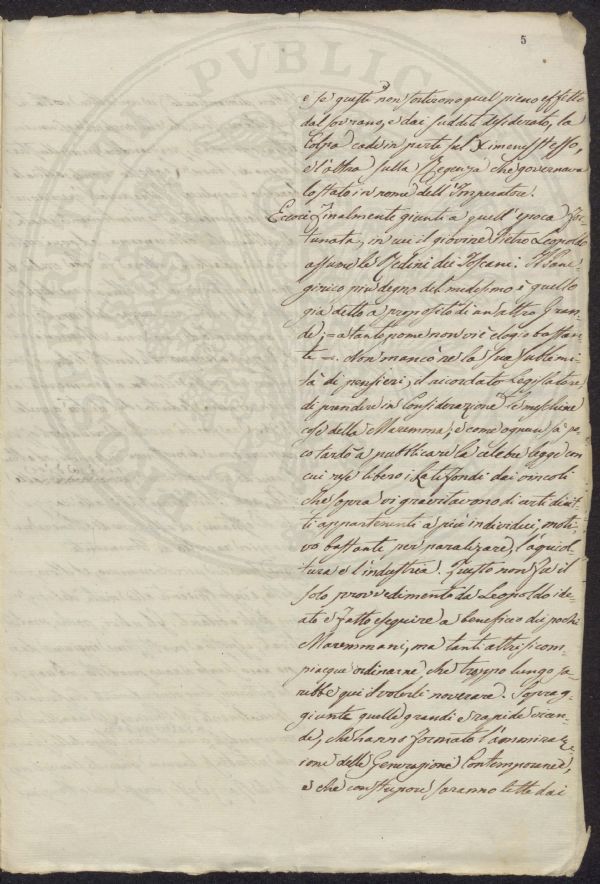 5
e se questi non sortirono quel pieno effetto
dal sovrano, e dai sudditi desiderato, la
Colpa cade in parte sul Ximenes stesso,
e l'altra sulla Regenza che governava
lo stato in nome dell'Imperatore.
Eccoci finalmente giunti a quell'epoca for-
tunata, in cui il giovine Pietro Leopoldo
assume le Redini dei Toscani. Il Pane-
girico più degno del medesimo è quello
già detto a proposito di un'altro Gran-
de, = a tanto nome non vi è elogio bastan-
te =. Non mancò nè la sua sublimi-
tà di pensieri, il ricordato Legislatore
di prendere in Considerazione le meschine
cose della Maremma; e come ognun sà po-
co tardò a pubblicare la celebre legge con
cui rese libero i Latifondi dai vincoli
che sopra vi gravitavono di certi dirit-
ti appartenenti a più individui, moti-
vo bastante per paralizare, l'agricol-
tura e l'industria. Questo non fu il
solo provvedimento da Leopoldo ide-
ato e fatto eseguire a beneficio dei pochi
Maremmani, ma tanti altri si com-
piacque ordinarne, che troppo lungo sa-
rebbe qui il volerli noverare. Soprag-
giunte quelle grandi e rapide vicen-
de, che hanno formato l'ammiraz-
ione della Generazione Contemporanea,
e che con stupore saranno lette dai
PVBLIC